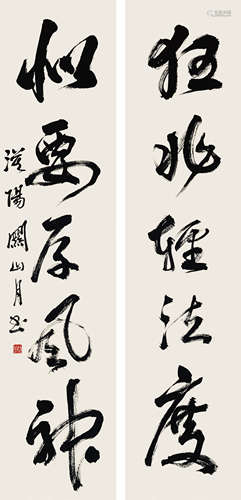 狂非轻法度
似要存风神
漠阳关山月书